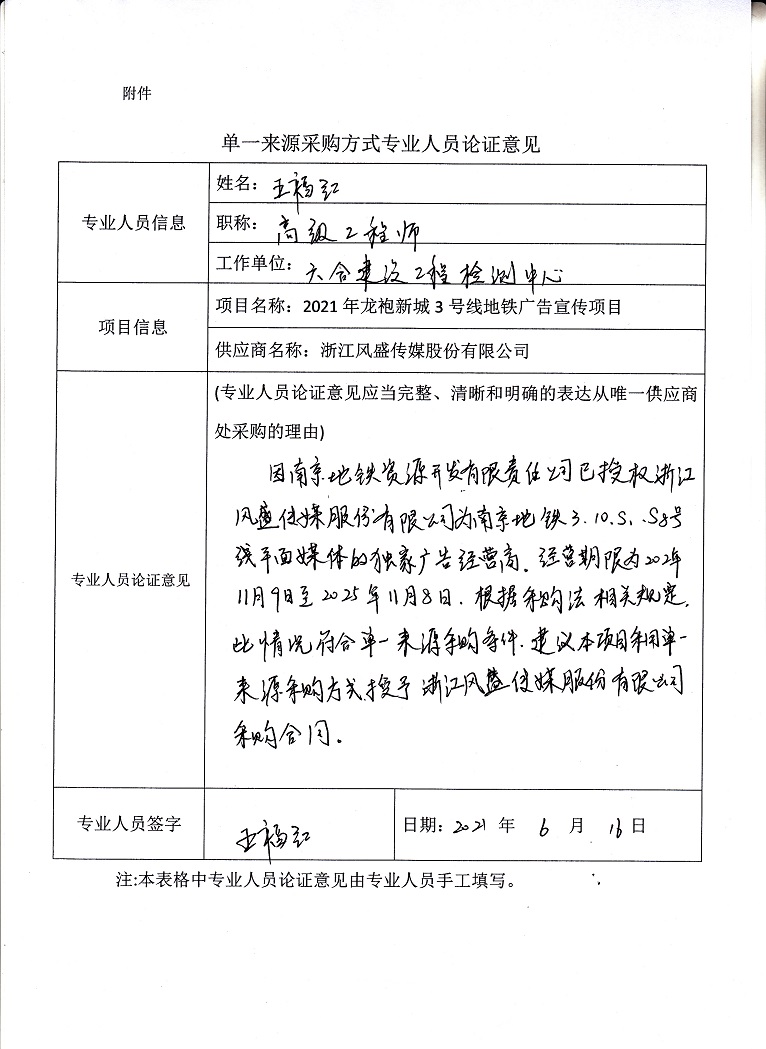 附件
单一来源采购方式专业人员论证意见
专业人员信息
姓名：王福红
职称：高级工程师
工作单位：六合建设工程检测中心
项目信息
项目名称：2021年龙袍新城3号线地铁广告宣传项目
供应商名称：浙江风盛传媒股份有限公司
专业人员论证意见
(专业人员论证意见应当完整、清晰和明确的表达从唯一供应商
处采购的理由)
因南京地铁资源开发有限责任公司已授权浙江
风盛传媒股份有限公司为南京地铁3.10.S、S8号
线平面媒体的独家广告经营商，经营期限为202年
11月9日至2025年11月8日．根据采购法相关规定，
此情况符合单一来源采购条件．建议本项目采用单一
来源采购方式授予浙江风盛传媒股份有限公司
采购合同。
专业人员签字
王福红
日期：2021年6月16日
注:本表格中专业人员论证意见由专业人员手工填写。